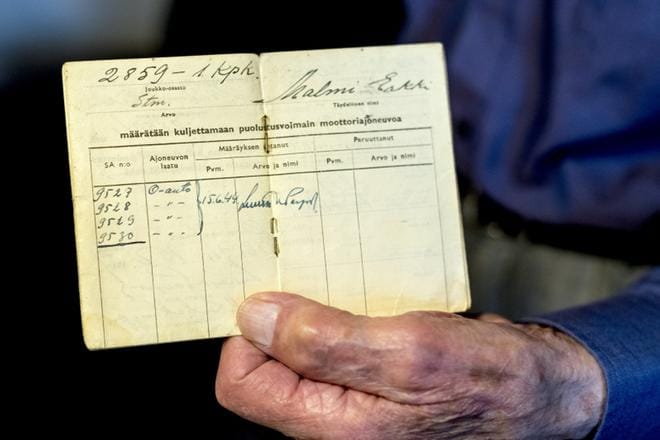 2859 - 1 Kpk. Malmi Eskki
Joukko-osasto Täydellinen nimi
Stm.
Arvo
määrätään kuljettamaan puolustusvoimain moottoriajoneuvoa
SA n:o Ajoneuvon laatu Määräyksen antanut Peruuttanut
Pvm. Arvo ja nimi Pvm. Arvo ja nimi
9527 O-auto
9528 - " -
9529 - " - 15.6.44.
9530 - " -